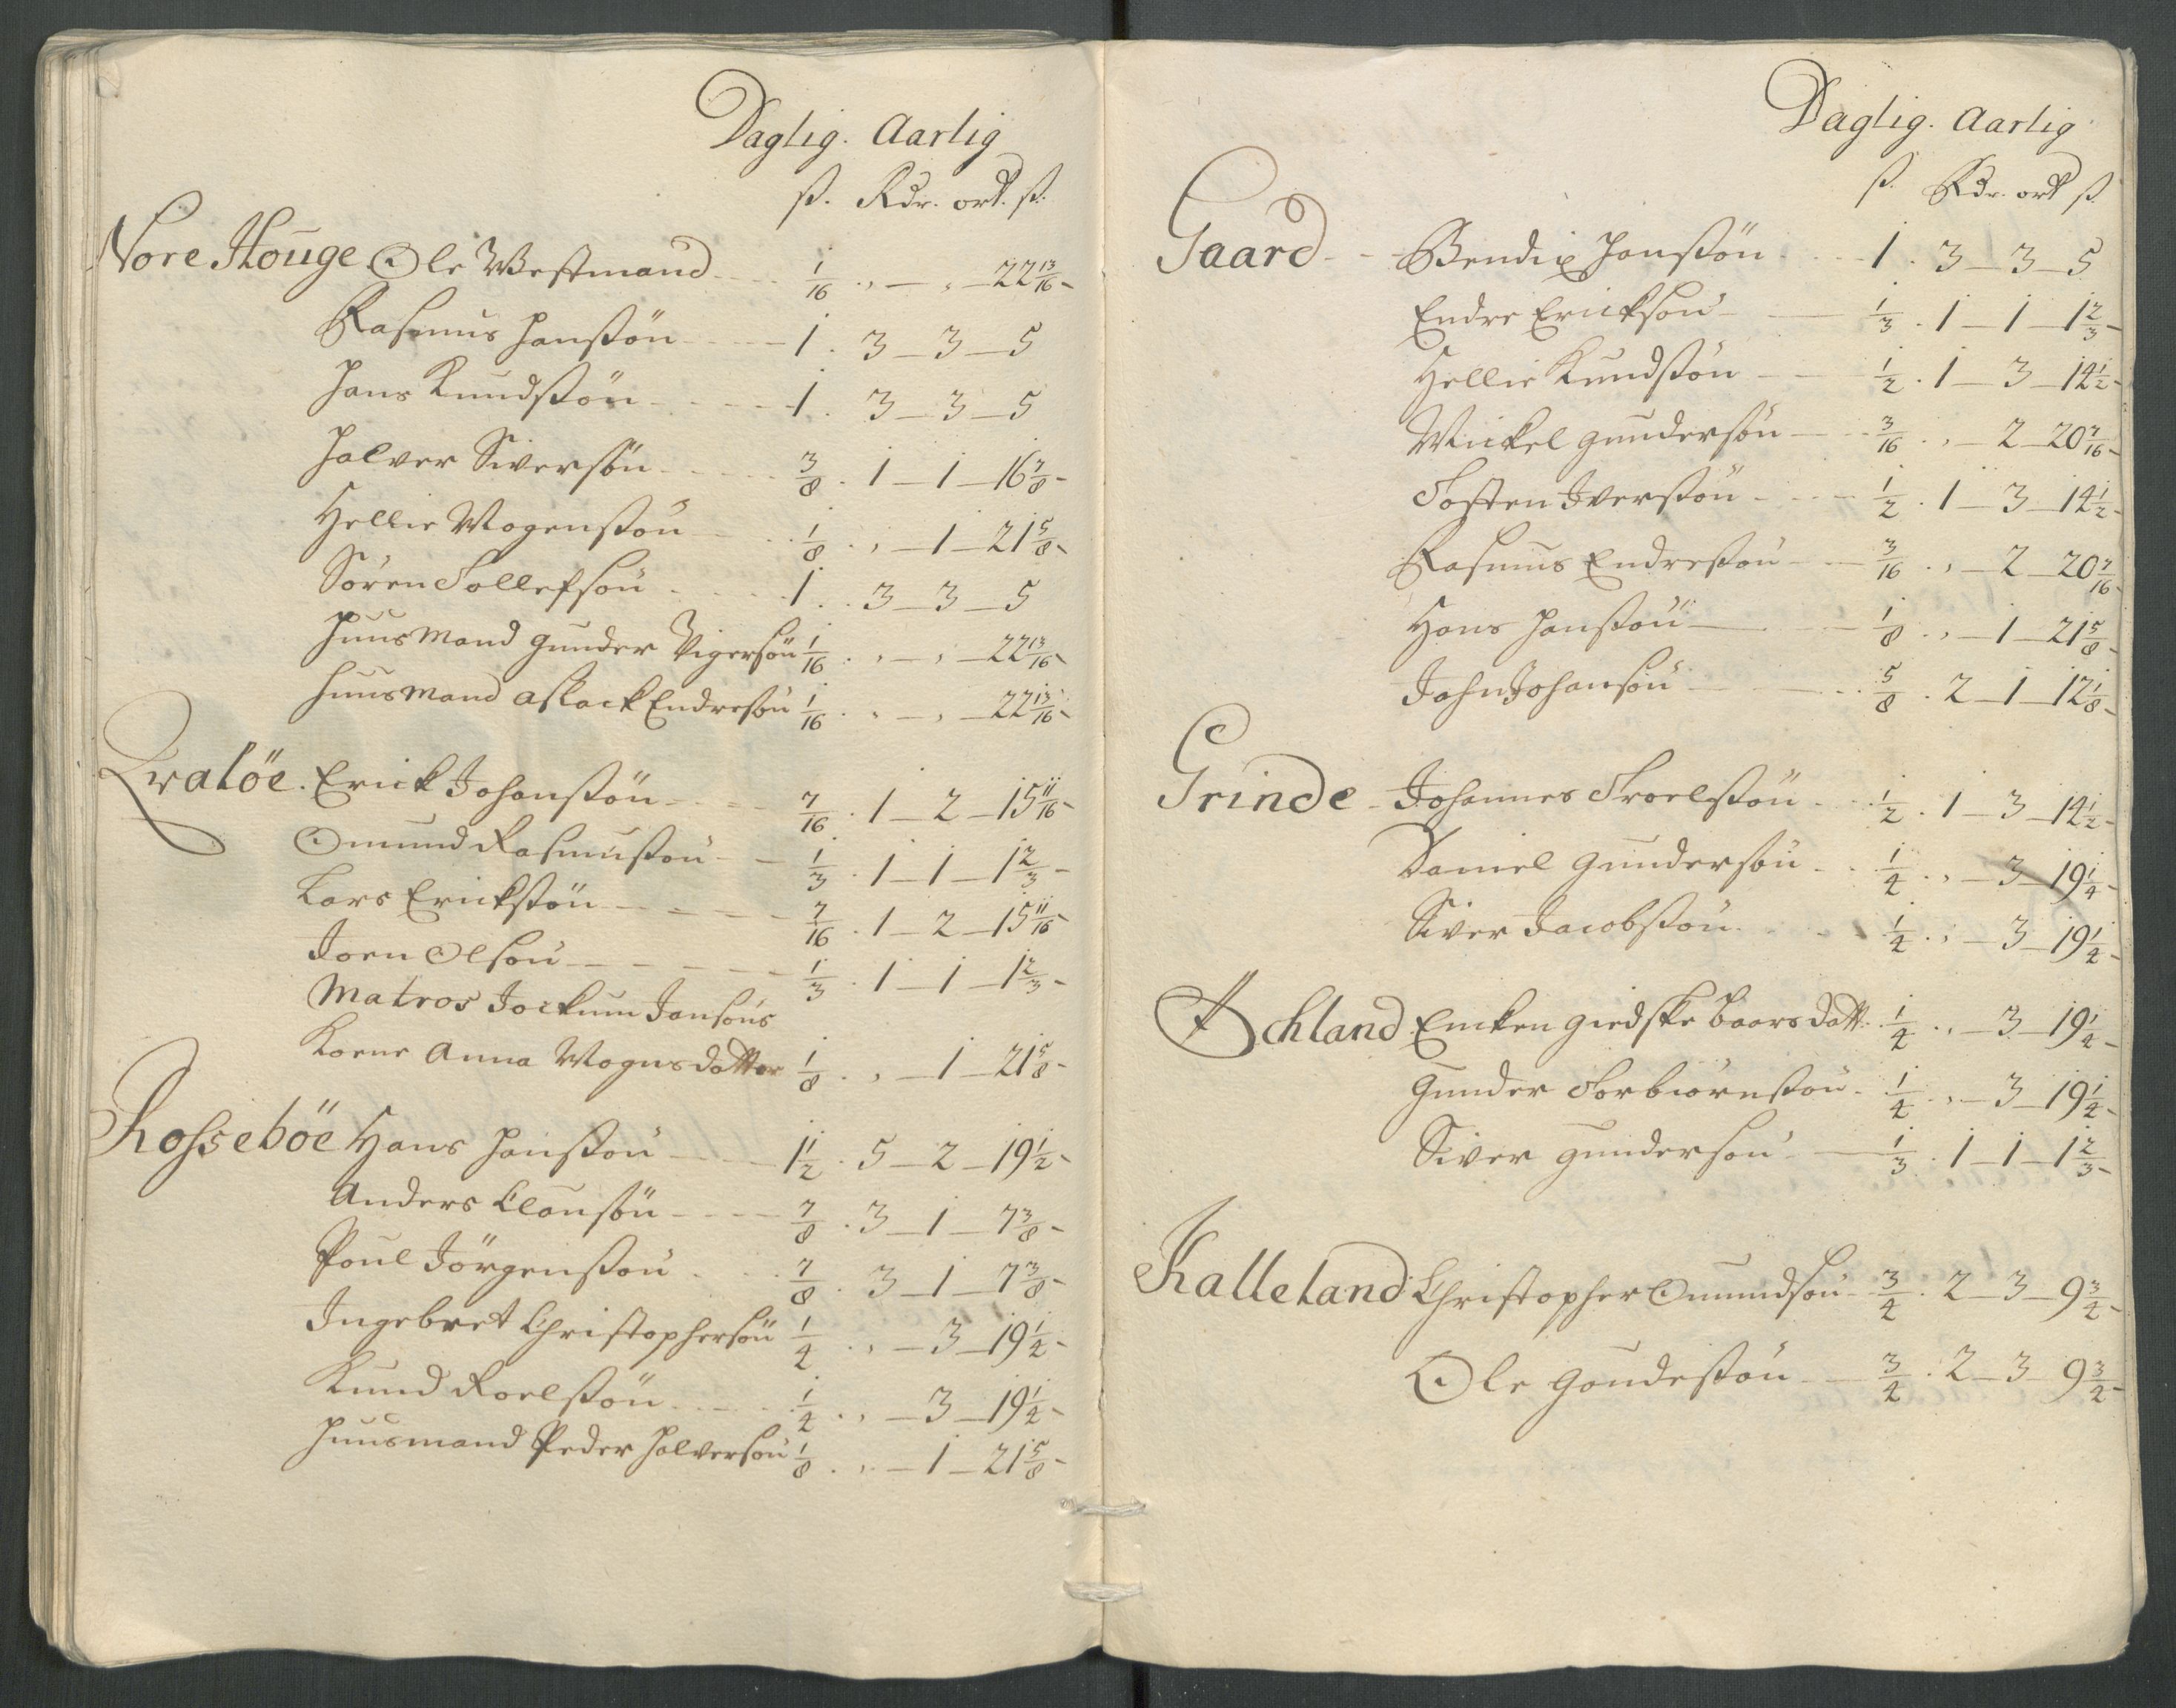 Daglig. Aarlig
ß. Rdr. ort. ß.
Nore Houge Ole Westmand 1/16 . , — , — 22 13/16
Rasmus Hansßön 1 . 3 — 3 — 5
Hans Knudsßön 1 . 3 — 3 — 5
Halver Siversön 3/8 . 1 — 1 — 16 7/8
Hellie Mogensßön 1/8 . , — 1 — 21 5/8
Sören Tollefsön 1 . 3 — 3 — 5
Huusmand Gunder Vigersön 1/16 . , — , — 22 13/16
Huusmand Aslack Endresön 1/16 . , — , — 22 13/16
Qvalöe . Erick Johansßön 7/16 . 1 — 2 — 15 11/16
Omund Rasmusßön 1/3 . 1 — 1 — 1 2/3
Lars Ericksßön 7/16 . 1 — 2 — 15 11/16
Joen Olsön 1/3 . 1 — 1 — 1 2/3
Matros Jockum Jansöns
Koene Anna Mognsdatter 1/8 . , — 1 — 21 5/8
Rosseböe Hans Hansßön 1 1/2 . 5 — 2 — 19 1/2
Anders Clausön 7/8 . 3 — 1 — 7 3/8
Poul Jörgensßön 7/8 . 3 — 1 — 7 3/8
Ingebret Christophersön 1/4 . , — 3 — 19 1/4
Knud Roelsßön 1/4 . , — 3 — 19 1/4
Huusmand Peder Halversön 1/8 . , — 1 — 21 5/8
Daglig. Aarlig
ß. Rdr. ort ß
Gaard Bendix Hansßön 1 . 3 — 3 — 5
Endre Ericksön 1/3 . 1 — 1 — 1 2/3
Hellie Knudsßön 1/2 . 1 — 3 — 14 1/2
Mickel Gundersön 3/16 . , — 2 — 20 7/16
Tosten Iversßön 1/2 . 1 — 3 — 14 1/2
Rasmus Endresßön 3/16 . , — 2 — 20 7/16
Hans Hansßön 1/8 . , — 1 — 21 5/8
John Johansön 5/8 . 2 — 1 — 12 1/8
Grinde Johannes Troelsßön 1/2 . 1 — 3 — 14 1/2
Daniel Gundersön 1/4 . , — 3 — 19 1/4
Siver Jacobsßön 1/4 . , — 3 — 19 1/4
Achland Encken Giedske Baarsdatt. 1/4 . , — 3 — 19 1/4
Gunder Torbiörnsßön 1/4 . , — 3 — 19 1/4
Siver Gundersön 1/3 . 1 — 1 — 1 2/3
Kalleland Christopher Omundsön 3/4 . 2 — 3 — 9 3/4
Ole Goudesßön 3/4 . 2 — 3 9 3/4